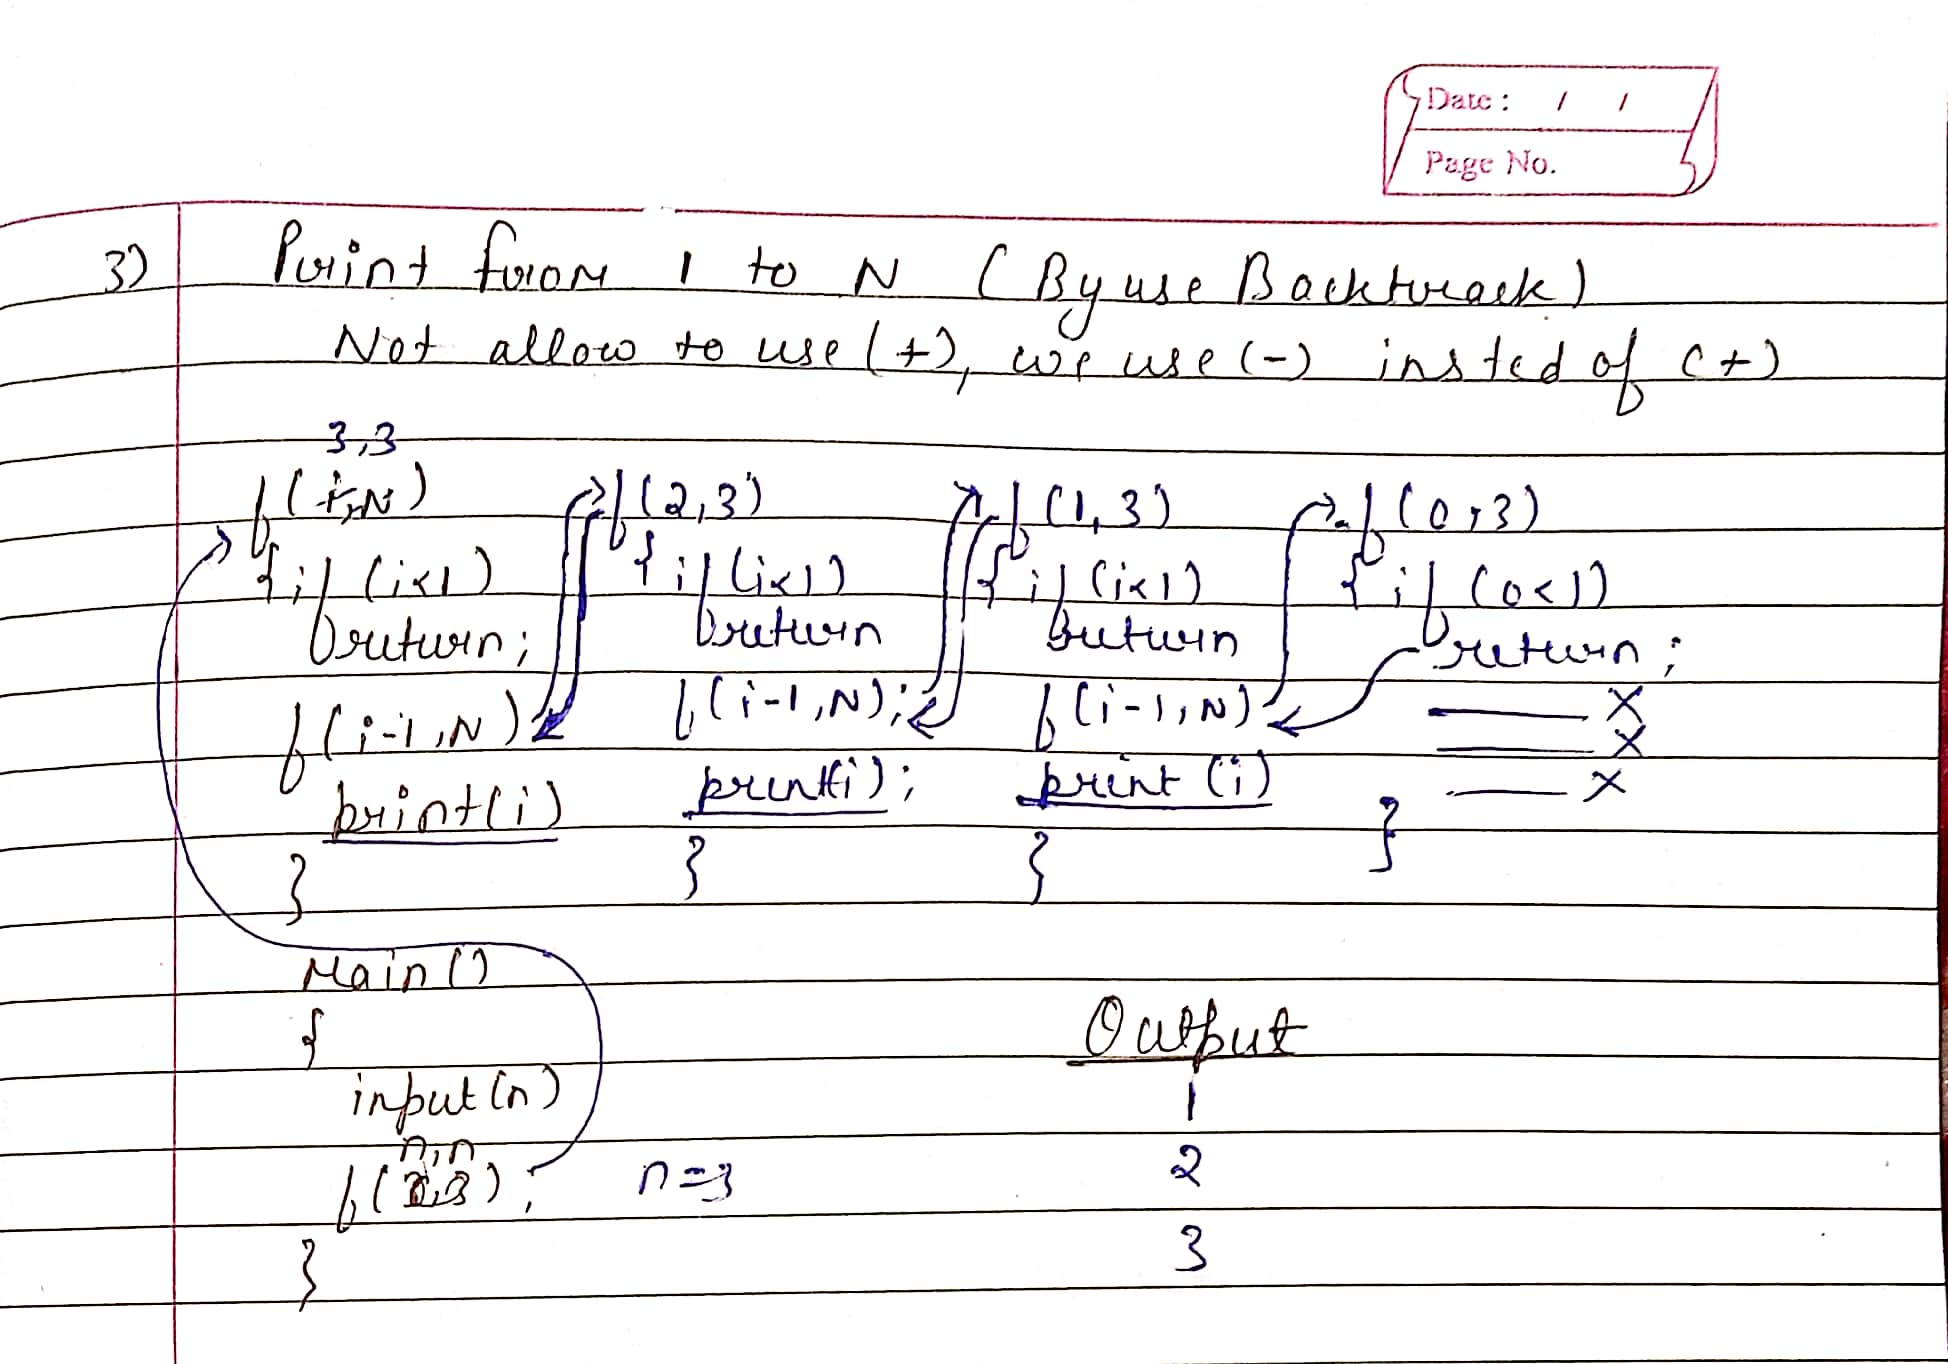 Date : / /
Page No.
3) Print from 1 to N (By use Backtrack)
Not allow to use (+), we use (-) insted of (+)
3,3
f(i,N)
{ if (i<1)
return;
f(i-1,N)
print(i)
}
f(2,3)
{ if (i<1)
return
f(i-1,N);
print(i);
}
f(1,3)
{ if (i<1)
return
f(i-1,N)
print (i)
}
f(0,3)
{ if (0<1)
return;
x
x
x
}
Main()
{
input(n)
n,n
f( , );
n=3
}
Output
1
2
3